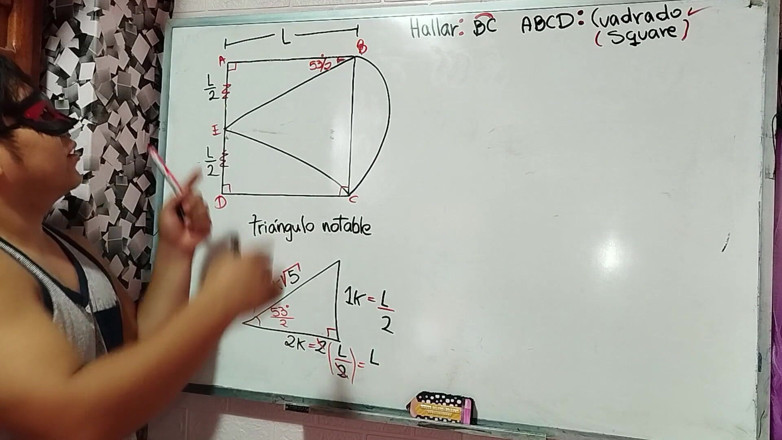 Hallar: BC ABCD: (Cuadrado
(Square)
L
A
B
53°/2
L/2
E
L/2
D
C
Triángulo notable
√5
1K = L/2
53°/2
2K = 2(L/2) = L